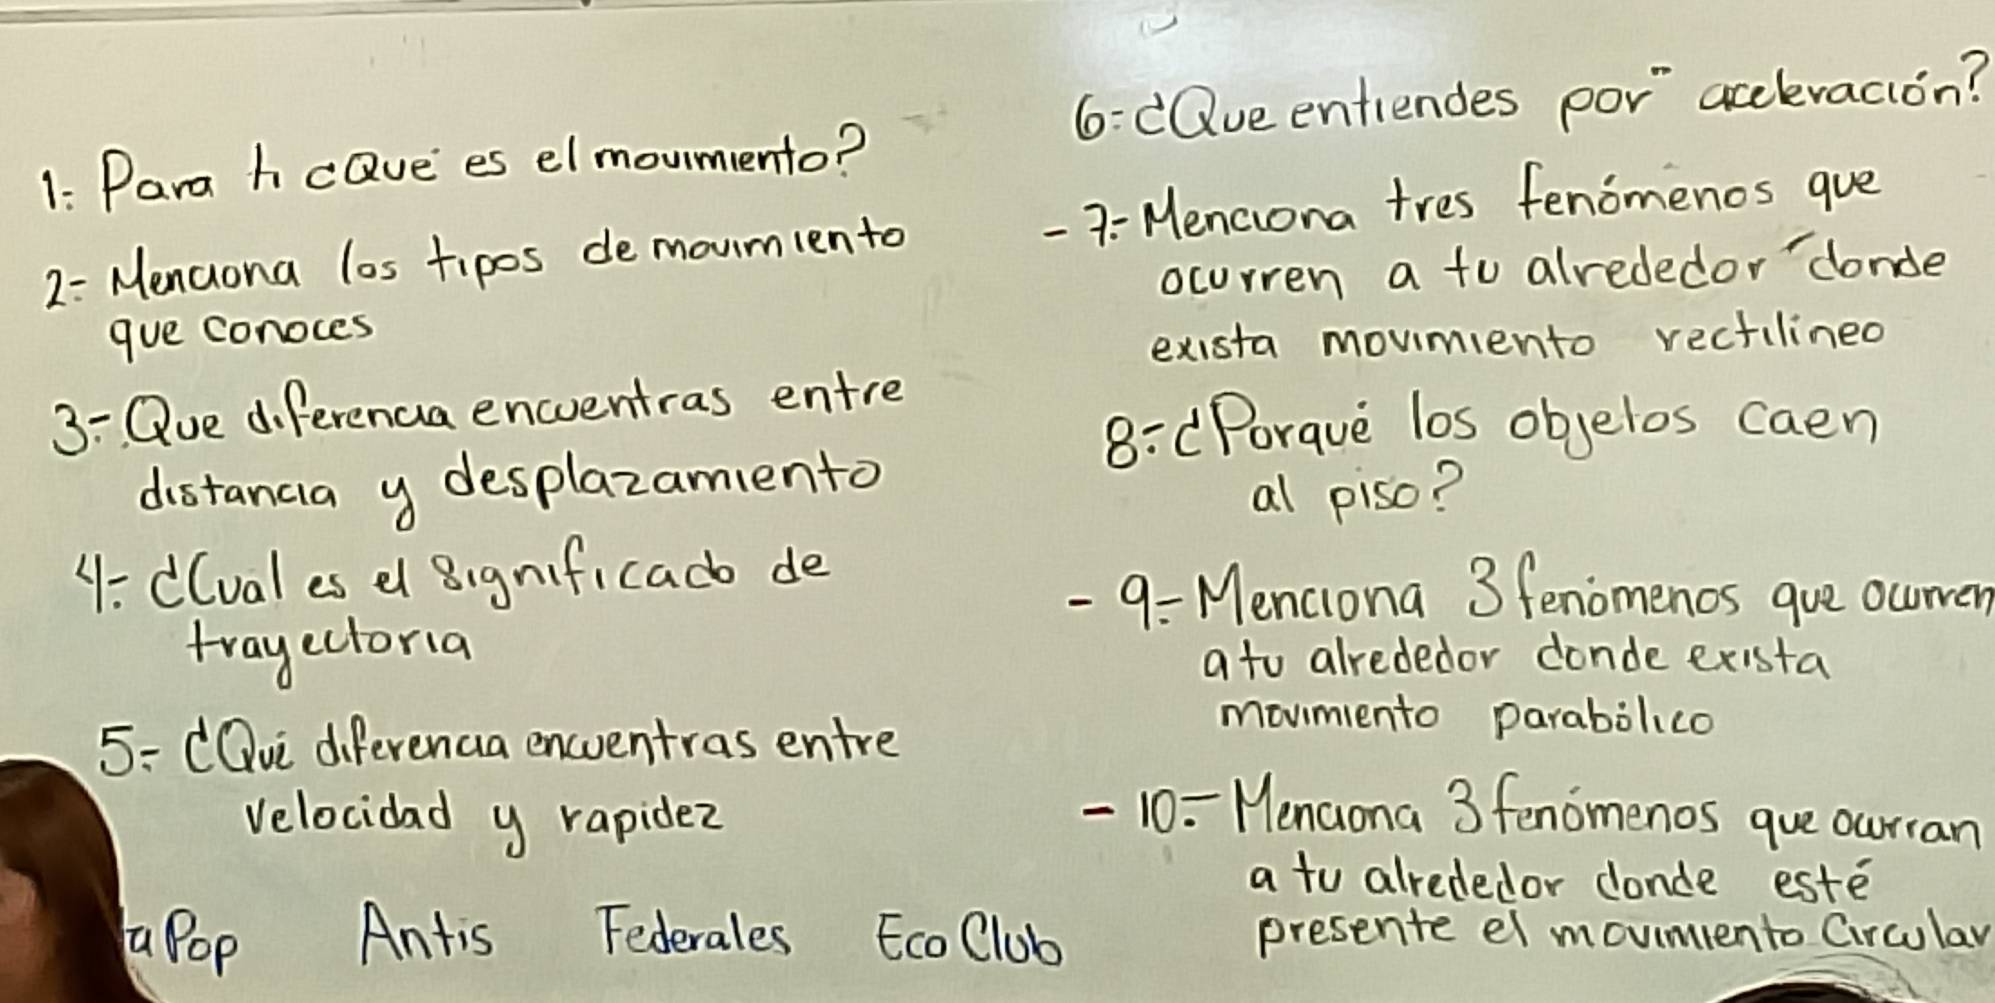 1.- Para ti ¿Qué es el movimiento?
2.- Menciona los tipos de movimiento
que conoces
3.- Que diferencia encuentras entre
distancia y desplazamiento
4.- ¿Cual es el significado de
trayectoria
5.- ¿Qué diferencia encuentras entre
velocidad y rapidez
6.- ¿Que entiendes por aceleración?
- 7.- Menciona tres fenómenos que
ocurren a tu alrededor donde
exista movimiento rectilineo
8.- ¿Porqué los objetos caen
al piso?
- 9.- Menciona 3 fenómenos que ocurren
a tu alrededor donde exista
movimiento parabólico
- 10.- Menciona 3 fenómenos que ocurran
a tu alrededor donde esté
presente el movimiento Circular
Pop Antis Federales Eco Club